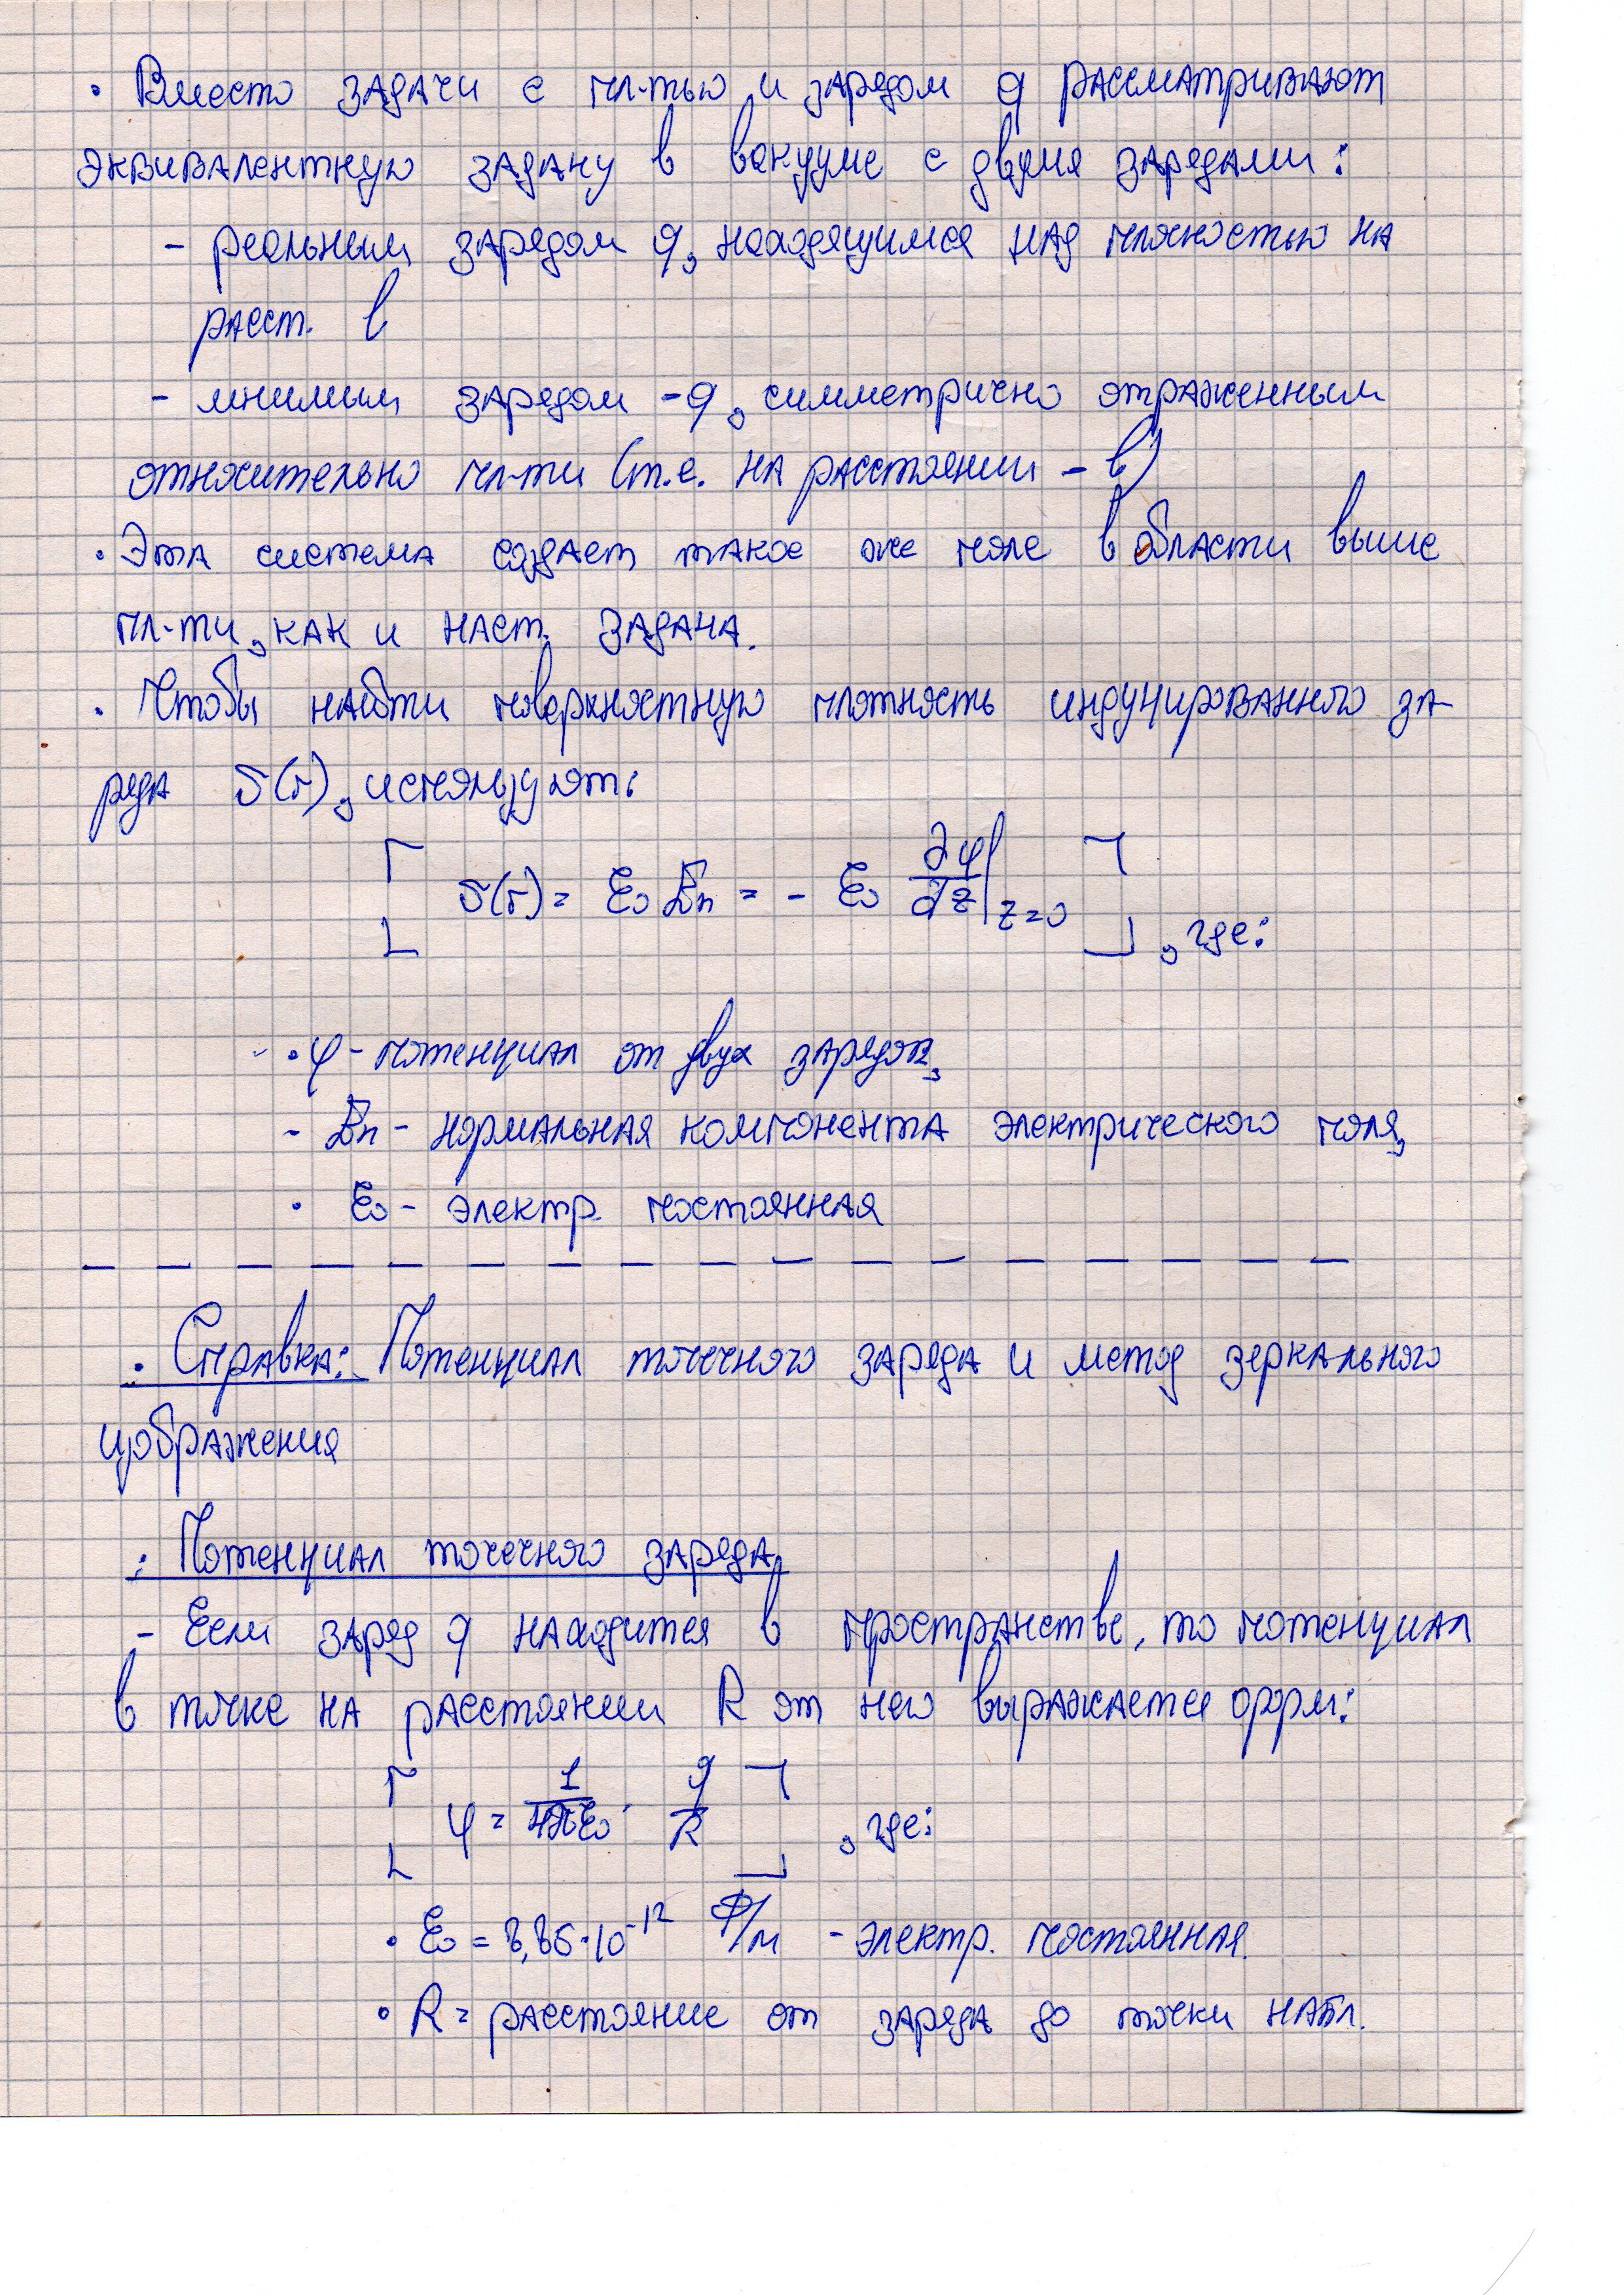 · Вместо задачи с пл-тью и зарядом q рассматривают
эквивалентную задачу в вакууме с двумя зарядами:
- реальным зарядом q, находящимся над плоскостью на
расст. l
- мнимым зарядом -q, симметрично отраженным
относительно пл-ти (т.е. на расстоянии -l)
· Эта система создает такое же поле в области выше
пл-ти, как и наст. задача.
· Чтобы найти поверхностную плотность индуцированного за-
ряда σ(r), используют:
σ(r) = ε₀ Eₙ = - ε₀ ∂φ/∂z |z=0 , где:
· φ - потенциал от двух зарядов,
- Eₙ - нормальная компонента электрического поля,
· ε₀ - электр. постоянная
· Справка: Потенциал точечного заряда и метод зеркального
изображения
· Потенциал точечного заряда
- Если заряд q находится в пространстве, то потенциал
в точке на расстоянии R от него выражается форм:
φ = 1/4πε₀ · q/R , где:
· ε₀ = 8,85·10⁻¹² Ф/м - электр. постоянная.
· R = расстояние от заряда до точки набл.